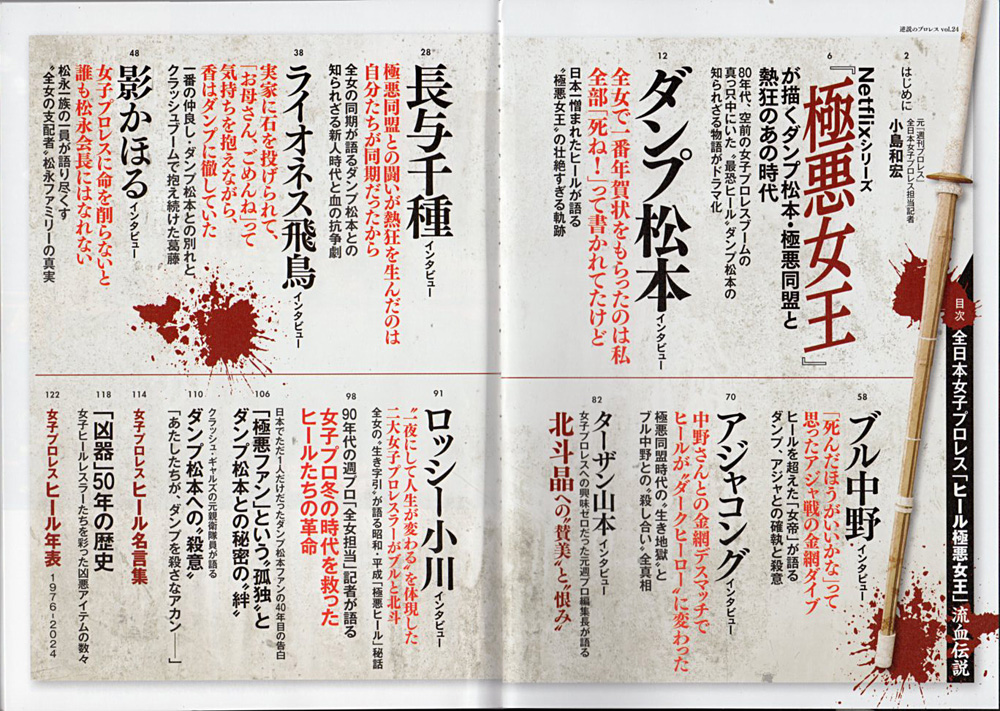 逆説のプロレス vol.24
目次
全日本女子プロレス「ヒール極悪女王」流血伝説
2
はじめに
元『週刊プロレス』
全日本女子プロレス担当記者
小島和宏
6
Netflixシリーズ
『極悪女王』
が描くダンプ松本・極悪同盟と
熱狂のあの時代
80年代、空前の女子プロレスブームの
真っ只中にいた〝最恐ヒール〟ダンプ松本の
知られざる物語がドラマ化
12
ダンプ松本 インタビュー
全女で一番年賀状をもらったのは私
全部「死ね！」って書かれてたけど
日本一憎まれたヒールが語る
〝極悪女王〟の壮絶すぎる軌跡
28
長与千種 インタビュー
極悪同盟との闘いが熱狂を生んだのは
自分たちが同期だったから
全女の同期が語るダンプ松本との
知られざる新人時代と血の抗争劇
38
ライオネス飛鳥 インタビュー
実家に石を投げられて、
「お母さん、ごめんね」って
気持ちを抱えながら、
香はダンプに徹していた
一番の仲良し・ダンプ松本との別れと、
クラッシュブームで抱え続けた葛藤
48
影かほる インタビュー
女子プロレスに命を削らないと
誰も松永会長にはなれない
松永一族の一員が語り尽くす
〝全女の支配者〟松永ファミリーの真実
58
ブル中野 インタビュー
「死んだほうがいいかな」って
思ったアジャ戦の金網ダイブ
ヒールを超えた〝女帝〟が語る
ダンプ、アジャとの確執と殺意
70
アジャコング インタビュー
中野さんとの金網デスマッチで
ヒールが〝ダークヒーロー〟に変わった
極悪同盟時代の〝生き地獄〟と
ブル中野との〝殺し合い〟全真相
82
ターザン山本 インタビュー
女子プロレスへの興味ゼロだった元週プロ編集長が語る
北斗晶への〝賛美〟と〝恨み〟
91
ロッシー小川 インタビュー
〝一夜にして人生が変わる〟を体現した
二大女子プロレスラーがブルと北斗
全女の〝生き字引〟が語る昭和・平成「極悪ヒール」秘話
98
90年代の週プロ「全女担当」記者が語る
女子プロ冬の時代を救った
ヒールたちの革命
106
日本でただ1人だけだったダンプ松本ファンの40年目の告白
「極悪ファン」という〝孤独〟と
ダンプ松本との秘密の〝絆〟
110
クラッシュ・ギャルズの元親衛隊員が語る
ダンプ松本への〝殺意〟
「あたしたちが、ダンプを殺さなアカン——」
114
女子プロレス ヒール名言集
118
「凶器」50年の歴史
女子ヒールレスラーたちを彩った凶悪アイテムの数々
122
女子プロレス ヒール年表 1976-2024